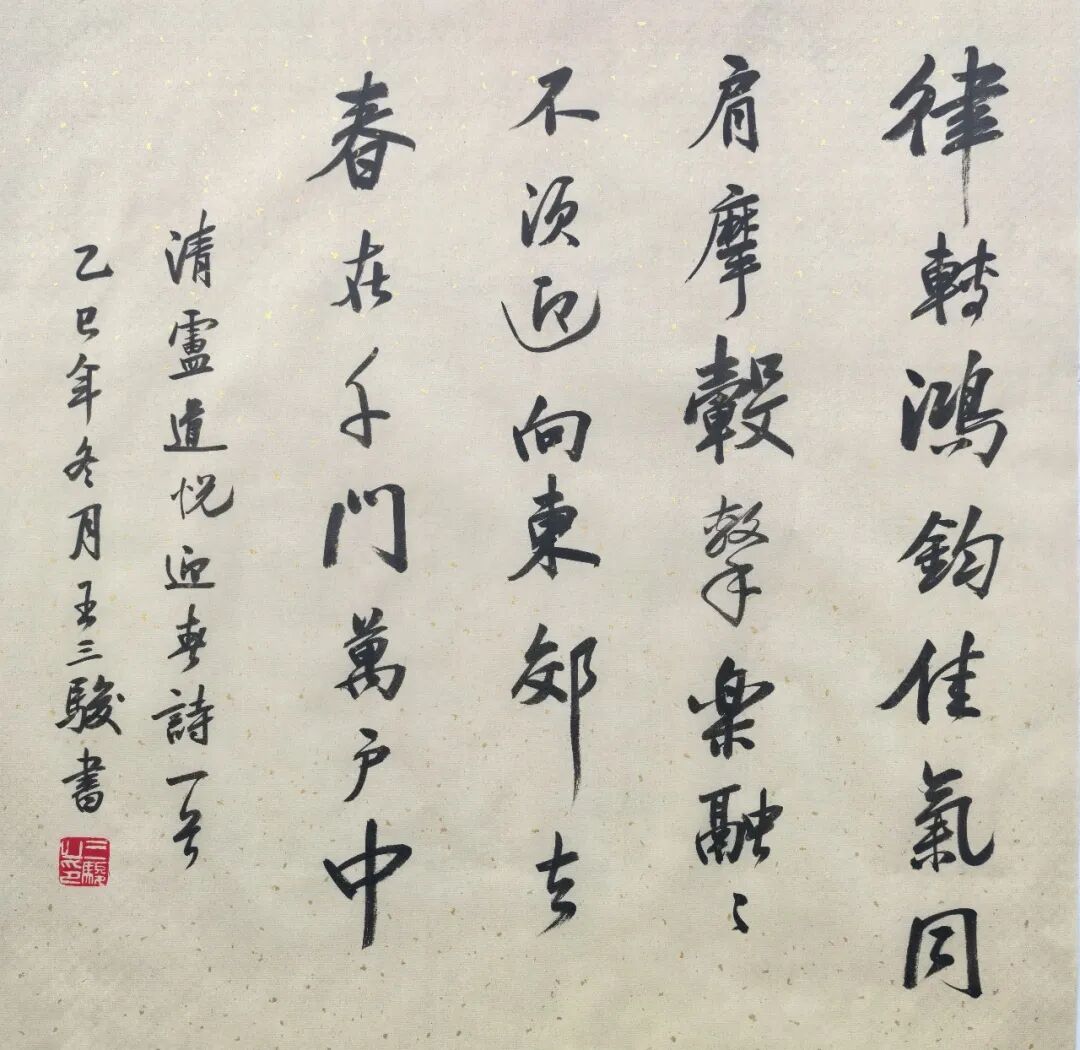 律轉鴻鈞佳氣同
肩摩轂擊樂融〻
不須迎向東郊去
春在千門萬戶中
清盧道悅迎春詩一首
乙巳年冬月王三駿書
三駿之印